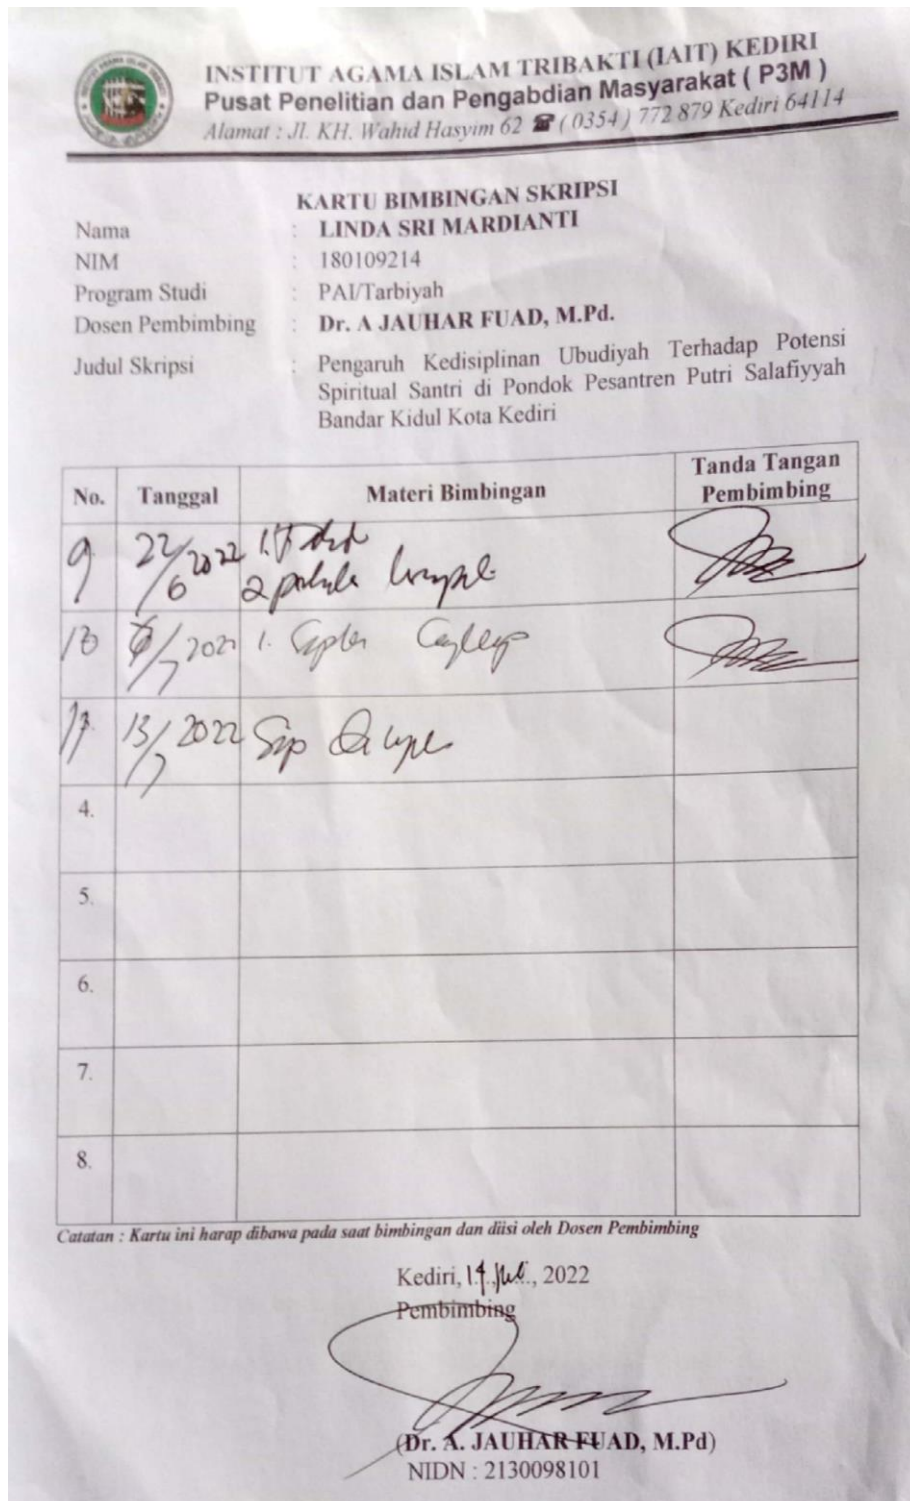 INSTITUT AGAMA ISLAM TRIBAKTI (IAIT) KEDIRI
Pusat Penelitian dan Pengabdian Masyarakat ( P3M )
Alamat : Jl. KH. Wahid Hasyim 62 ☎ ( 0354 ) 772 879 Kediri 64114
KARTU BIMBINGAN SKRIPSI
Nama : LINDA SRI MARDIANTI
NIM : 180109214
Program Studi : PAI/Tarbiyah
Dosen Pembimbing : Dr. A JAUHAR FUAD, M.Pd.
Judul Skripsi : Pengaruh Kedisiplinan Ubudiyah Terhadap Potensi
Spiritual Santri di Pondok Pesantren Putri Salafiyyah
Bandar Kidul Kota Kediri
No. Tanggal Materi Bimbingan Tanda Tangan
Pembimbing
9 22/6 2022 1.
2
10 /7 2022 1.
13/7 2022
4.
5.
6.
7.
8.
Catatan : Kartu ini harap dibawa pada saat bimbingan dan diisi oleh Dosen Pembimbing
Kediri, 14 Juli, 2022
Pembimbing
(Dr. A. JAUHAR FUAD, M.Pd)
NIDN : 2130098101